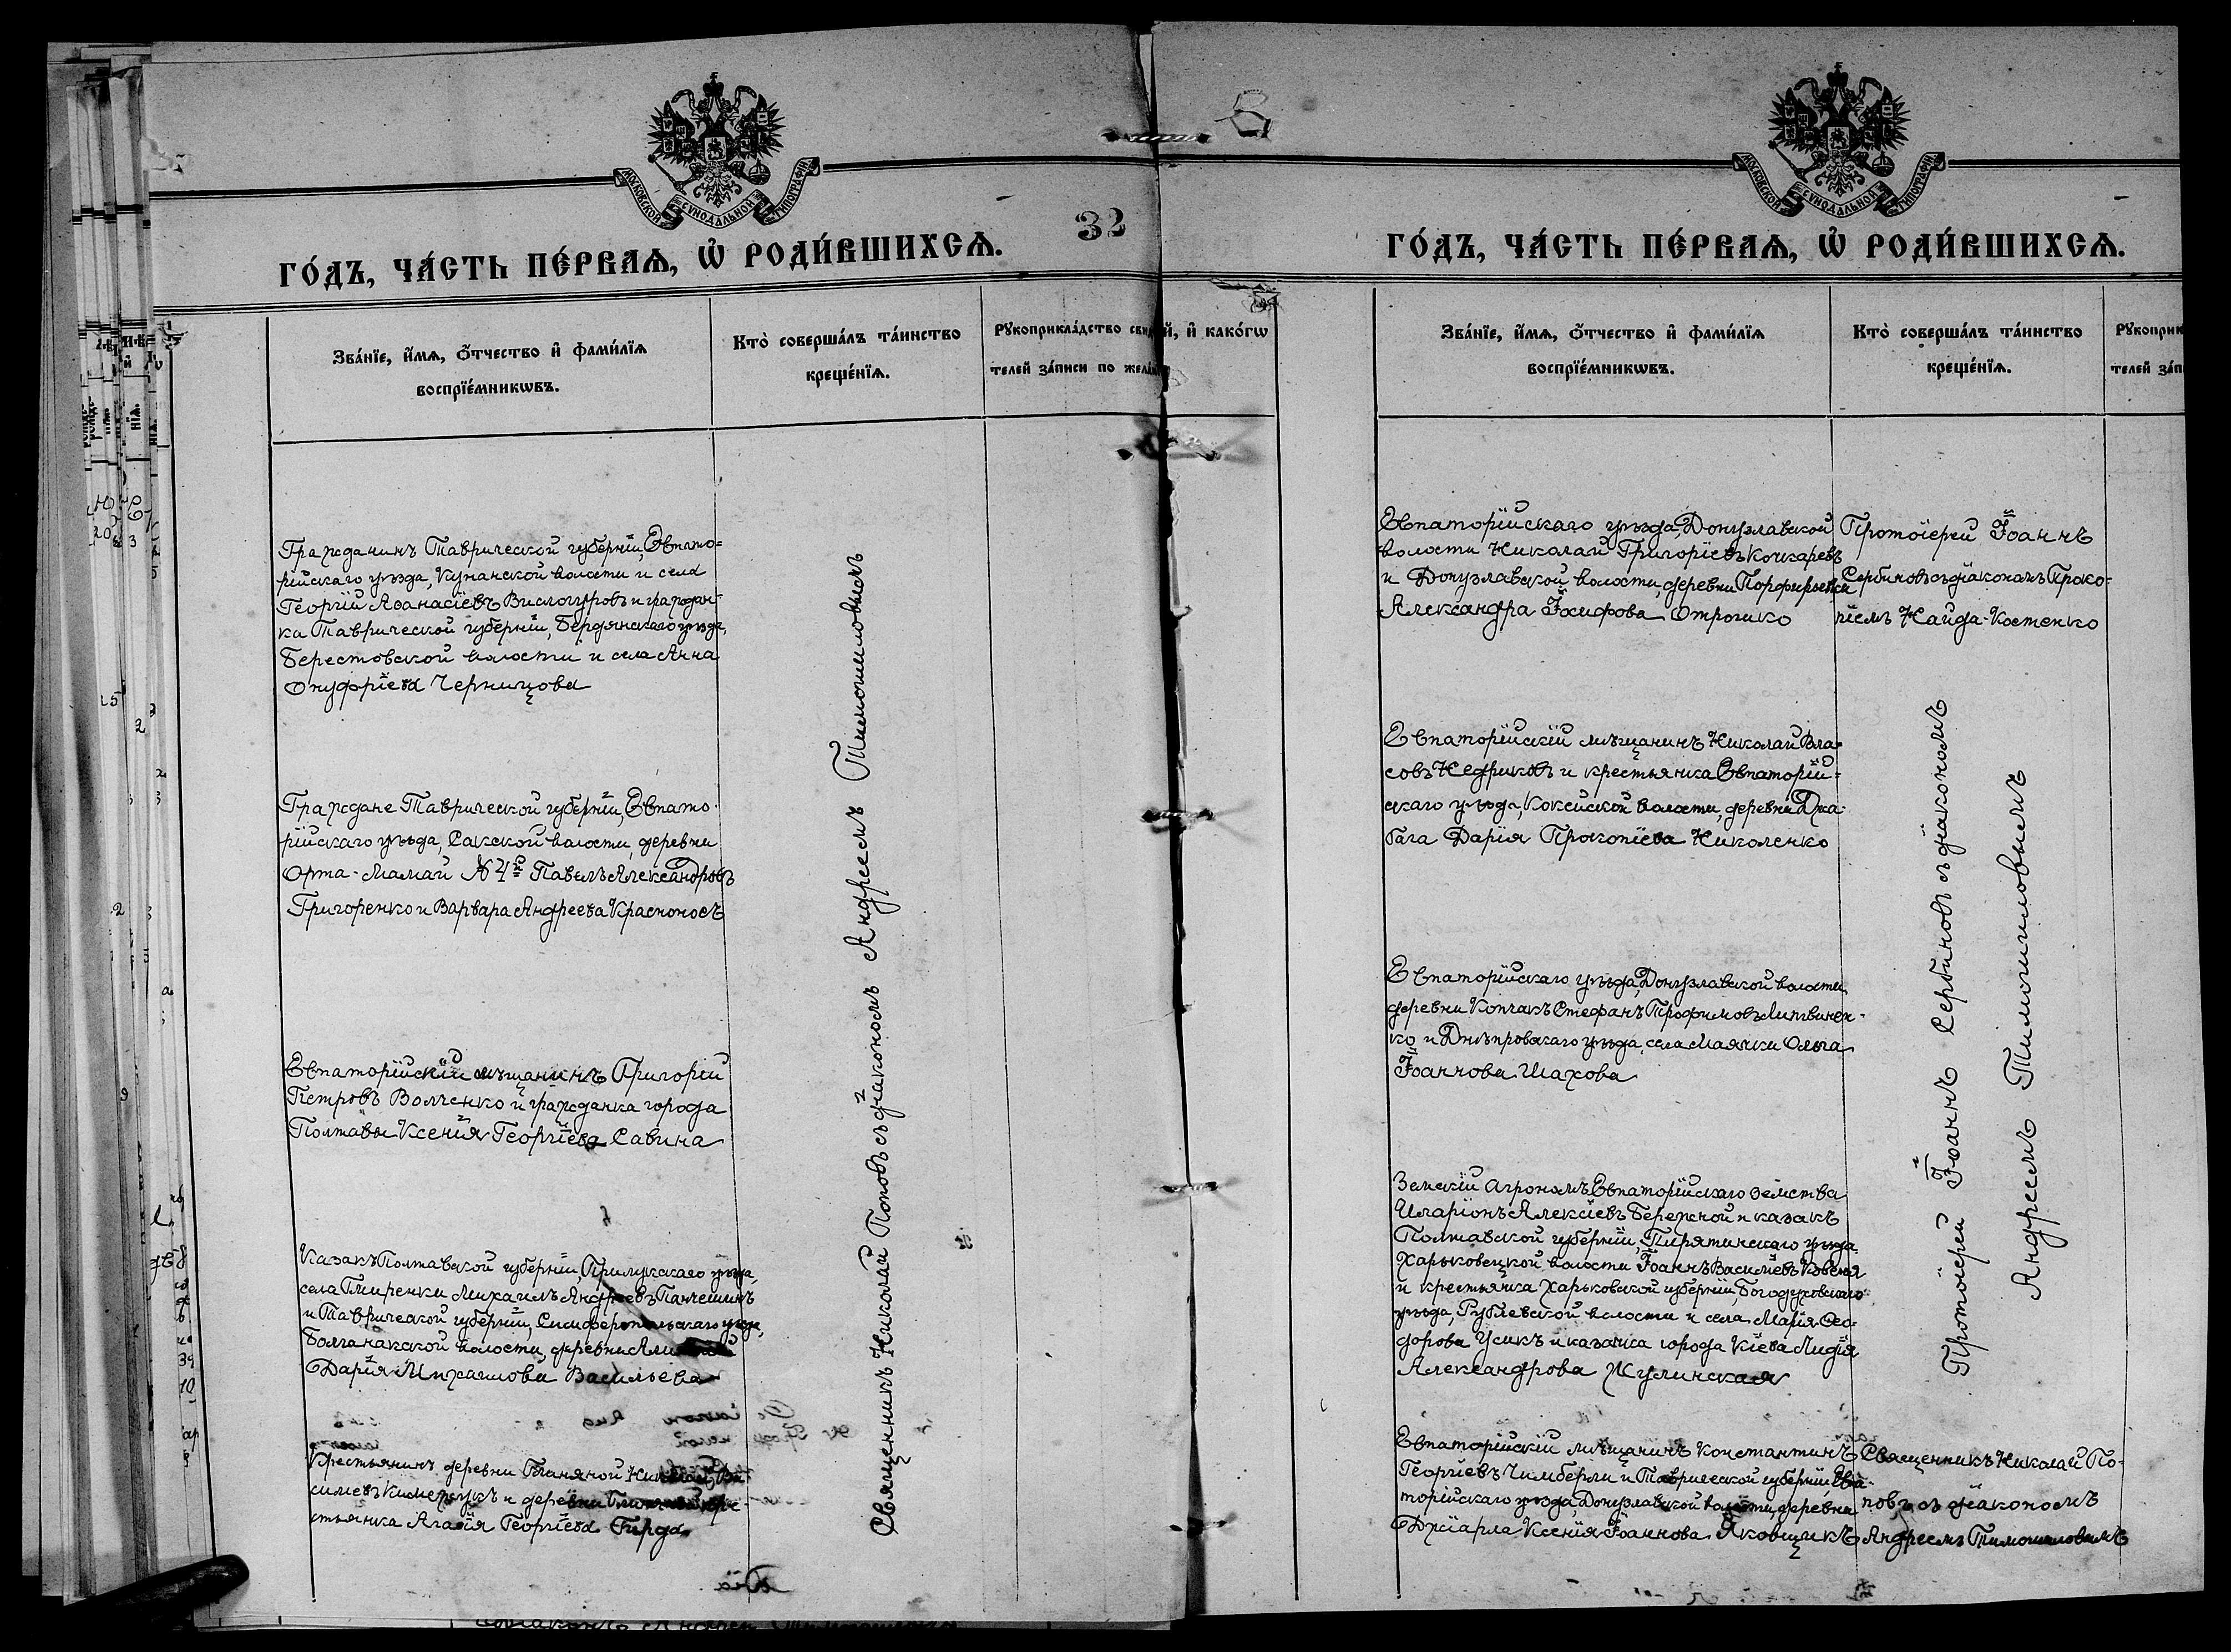 МОСКОВСКОЙ СѴНОДАЛЬНОЙ ТИПОГРАФІИ
32
ГО́ДЪ, ЧА́СТЬ ПЕ́РВАѦ, Ѡ҆ РОДИ́ВШИХСѦ.
Зва́нїе, и҆́мѧ, ѻ҆́тчество и҆ фами́лїѧ
воспрїе́мникѡвъ.
Кто̀ соверша́лъ та́инство
креще́нїѧ.
Рꙋкоприкла́дство свид
телей за́писи по жела́
Гражданинъ Таврической губерніи, Евпато=
рійскаго уѣзда, Кунанской волости и села
Георгій Аѳанасіевъ Вислогуровъ и граждан-
ка Таврической губерніи, Бердянскаго уѣзда,
Берестовской волости и села Анна
Онуфріева Черницова
Граждане Таврической губерніи, Евпато-
рійскаго уѣзда, Сакской волости, деревни
Орта-Мамай №4й Павелъ Александровъ
Григоренко и Варвара Андреева Красноносъ
Евпаторійскій мѣщанинъ Григорій
Петровъ Волченко и гражданка города
Полтавы Ксенія Георгіева Савина
Казакъ Полтавской губерніи, Прилукскаго уѣзда,
села Гмиренки Михаилъ Андреевъ Панчешинъ
и Таврической губерніи, Симферопольскаго уѣзда,
Болганакской волости, деревни
Дарія Михаилова Васильева
Крестьянинъ деревни
стьянка Агаѳія Георгіева Гирда
Священникъ Николай Поповъ съ діакономъ Андреемъ Тимошиловымъ
й, и҆ како́гѡ
МОСКОВСКОЙ СѴНОДАЛЬНОЙ ТИПОГРАФІИ
ГО́ДЪ, ЧА́СТЬ ПЕ́РВАѦ, Ѡ҆ РОДИ́ВШИХСѦ.
Зва́нїе, и҆́мѧ, ѻ҆́тчество и҆ фами́лїѧ
воспрїе́мникѡвъ.
Кто̀ соверша́лъ та́инство
креще́нїѧ.
Рꙋкоприк
телей за́п
Евпаторійскаго уѣзда, Донузлавской
волости Николай Григоріевъ Кочкаревъ
и Донузлавской волости, деревни Порфирьевки
Александра Іосифова Отрошко
Протоіерей Іоаннъ
Сербиновъ съ діакономъ Проко-
піемъ Найда-Костенко
Евпаторійскій мѣщанинъ Николай Вла-
совъ Недриковъ и крестьянка Евпаторій=
скаго уѣзда, Кокейской волости, деревни Джа-
бага Дарія Прокопіева Николенко
Евпаторійскаго уѣзда, Донузлавской волости,
деревни Копчакъ Стефанъ Трофимовъ Литвинен-
ко и Днѣпровскаго уѣзда, села Маячки Ольга
Іоаннова Шахова
Земскій агрономъ Евпаторійскаго земства
Иларіонъ Алексіевъ Бережной и казакъ
Полтавской губерніи, Пирятинскаго уѣзда,
Харьковецкой волости Іоаннъ Василіевъ
и крестьянка Харьковской губерніи, Богодуховскаго
уѣзда, Рублевской волости и села Марія Ѳео-
дорова Усикъ и казачка города Кіева Лидія
Александрова Жулинская
Протоіерей Іоаннъ Сербиновъ съ діакономъ
Андреемъ Тимошиловымъ
Евпаторійскій мѣщанинъ Константинъ
Георгіевъ Чимберли и Таврической губерніи, Евпа-
торійскаго уѣзда, Донузлавской волости, деревни
Ксенія Іоаннова Яковщикъ
Священникъ Николай По-
повъ съ діакономъ
Андреемъ Тимошиловымъ